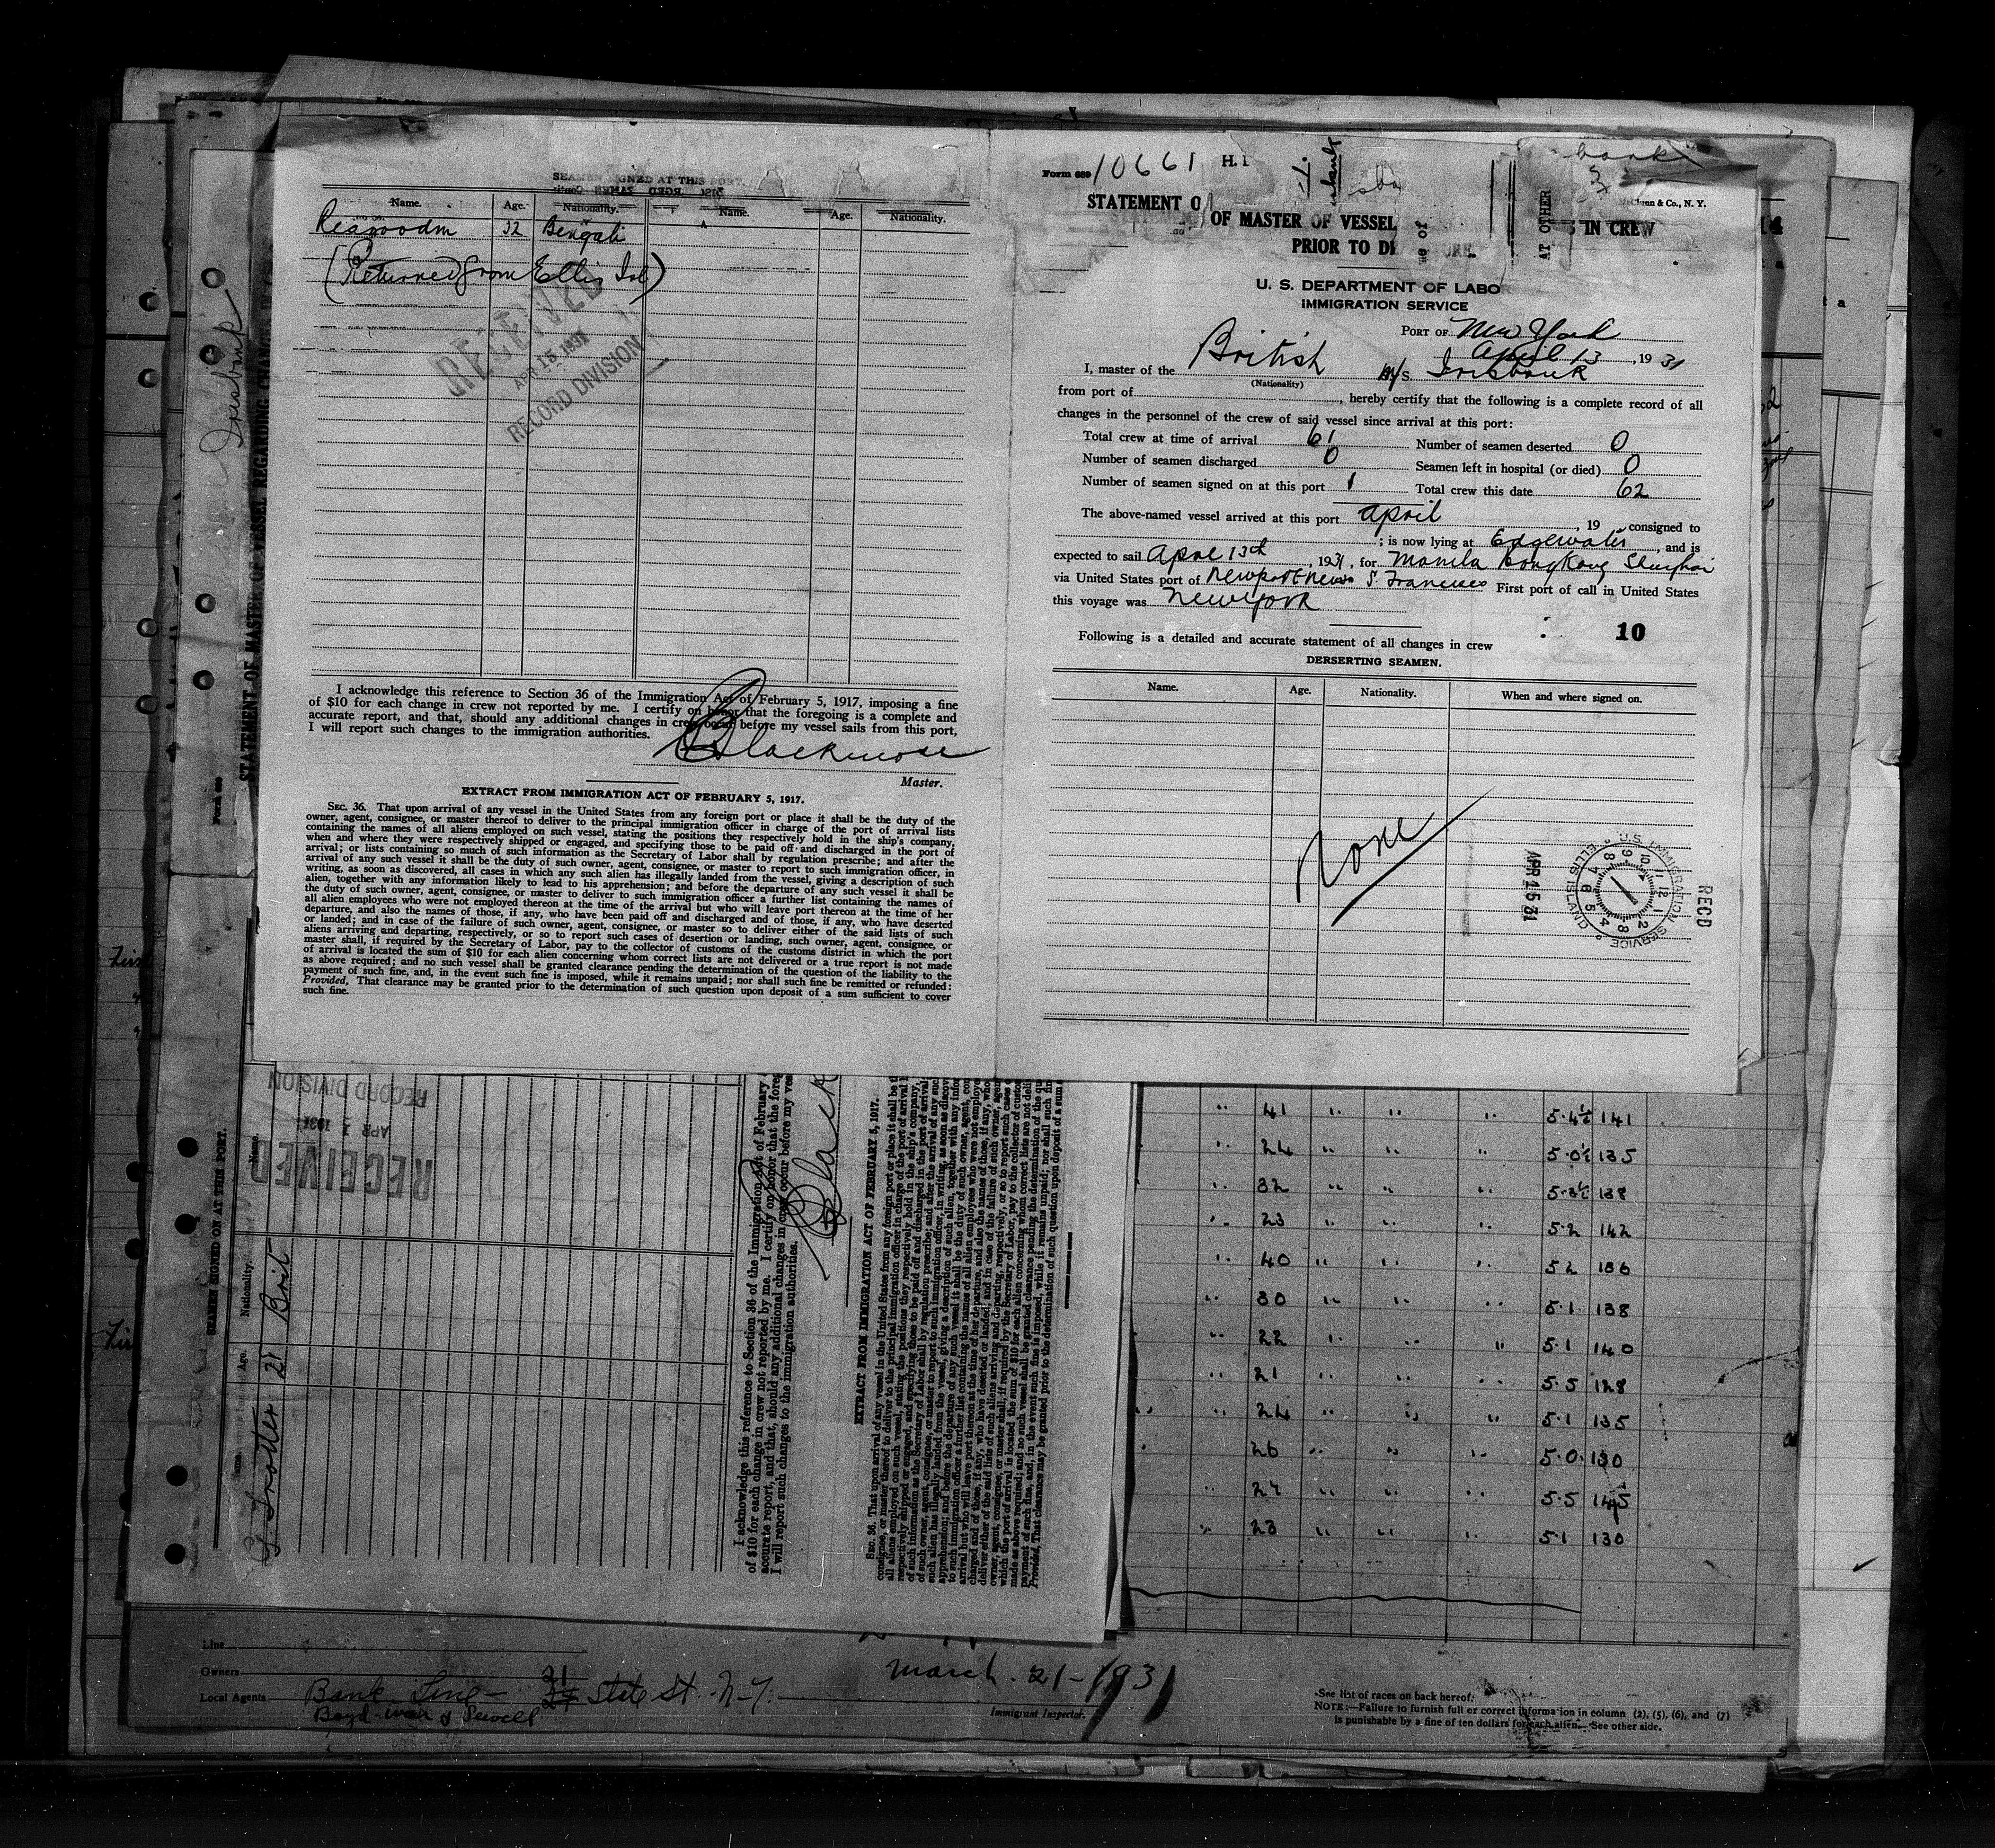 SEAMEN SIGNED AT THIS PORT.
Name. Age. Nationality. Name. Age. Nationality.
32 Bengali
(Returned from Ellis Isd)
RECEIVED
APR 15 1931
RECORD DIVISION
I acknowledge this reference to Section 36 of the Immigration Act of February 5, 1917, imposing a fine
of $10 for each change in crew not reported by me. I certify on honor that the foregoing is a complete and
accurate report, and that, should any additional changes in crew occur before my vessel sails from this port,
I will report such changes to the immigration authorities.
Master.
EXTRACT FROM IMMIGRATION ACT OF FEBRUARY 5, 1917.
SEC. 36. That upon arrival of any vessel in the United States from any foreign port or place it shall be the duty of the
owner, agent, consignee, or master thereof to deliver to the principal immigration officer in charge of the port of arrival lists
containing the names of all aliens employed on such vessel, stating the positions they respectively hold in the ship's company,
when and where they were respectively shipped or engaged, and specifying those to be paid off and discharged in the port of
arrival; or lists containing so much of such information as the Secretary of Labor shall by regulation prescribe; and after the
arrival of any such vessel it shall be the duty of such owner, agent, consignee, or master to report to such immigration officer, in
writing, as soon as discovered, all cases in which any such alien has illegally landed from the vessel, giving a description of such
alien, together with any information likely to lead to his apprehension; and before the departure of any such vessel it shall be
the duty of such owner, agent, consignee, or master to deliver to such immigration officer a further list containing the names of
all alien employees who were not employed thereon at the time of the arrival but who will leave port thereon at the time of her
departure, and also the names of those, if any, who have been paid off and discharged and of those, if any, who have deserted
or landed; and in case of the failure of such owner, agent, consignee, or master so to deliver either of the said lists of such
aliens arriving and departing, respectively, or so to report such cases of desertion or landing, such owner, agent, consignee, or
master shall, if required by the Secretary of Labor, pay to the collector of customs of the customs district in which the port
of arrival is located the sum of $10 for each alien concerning whom correct lists are not delivered or a true report is not made
as above required; and no such vessel shall be granted clearance pending the determination of the question of the liability to the
payment of such fine, and, in the event such fine is imposed, while it remains unpaid; nor shall such fine be remitted or refunded:
Provided, That clearance may be granted prior to the determination of such question upon deposit of a sum sufficient to cover
such fine.
Form 689 10661 H. I
bank
& Co., N. Y.
STATEMENT O
OF MASTER OF VESSEL
IN CREW
AT OTHER
PRIOR TO
U. S. DEPARTMENT OF LABO
IMMIGRATION SERVICE
PORT OF New York
April 13, 1931
I, master of the British M/S. Irisbank
(Nationality)
from port of , hereby certify that the following is a complete record of all
changes in the personnel of the crew of said vessel since arrival at this port:
Total crew at time of arrival 61 Number of seamen deserted 0
Number of seamen discharged 0 Seamen left in hospital (or died) 0
Number of seamen signed on at this port 1 Total crew this date 62
The above-named vessel arrived at this port April , 19 , consigned to
; is now lying at Edgewater, and is
expected to sail April 13th, 1931, for Manila Hong Kong Shanghai
via United States port of Newport News S. Francisco First port of call in United States
this voyage was New York
10
Following is a detailed and accurate statement of all changes in crew
DERSERTING SEAMEN.
Name. Age. Nationality. When and where signed on.
None
U.S. IMMIGRATION SERVICE ELLIS ISLAND
RECD
APR 15 31
Irisbank
STATEMENT OF MASTER OF VESSEL REGARDING CHANGES
SEAMEN SIGNED ON AT THIS PORT.
Name. Age. Nationality. Name.
Trotter 21 Brit
RECEIVED
APR 1 1931
RECORD DIVISION
I acknowledge this reference to Section 36 of the Immigration Act of February
of $10 for each change in crew not reported by me. I certify on honor that the foreg
accurate report, and that, should any additional changes in crew occur before my ves
I will report such changes to the immigration authorities.
EXTRACT FROM IMMIGRATION ACT OF FEBRUARY 5, 1917.
41 " " " 5.4½ 141
24 " " " 5.0½ 135
32 " " " 5.3½ 138
23 " " " 5.2 142
40 " " " 5.2 136
30 " " " 5.1 138
22 " " " 5.1 140
21 " " " 5.5 128
24 " " " 5.1 135
26 " " " 5.0 130
27 " " " 5.5 145
23 " " " 5.1 130
Line
Owners
Local Agents Bank Line - 21 State St. N-Y.
Boyd-Weir & Sewell
March 21-1931
Immigrant Inspector.
See list of races on back hereof.
NOTE:—Failure to furnish full or correct information in column (2), (5), (6), and (7)
is punishable by a fine of ten dollars for each alien. See other side.